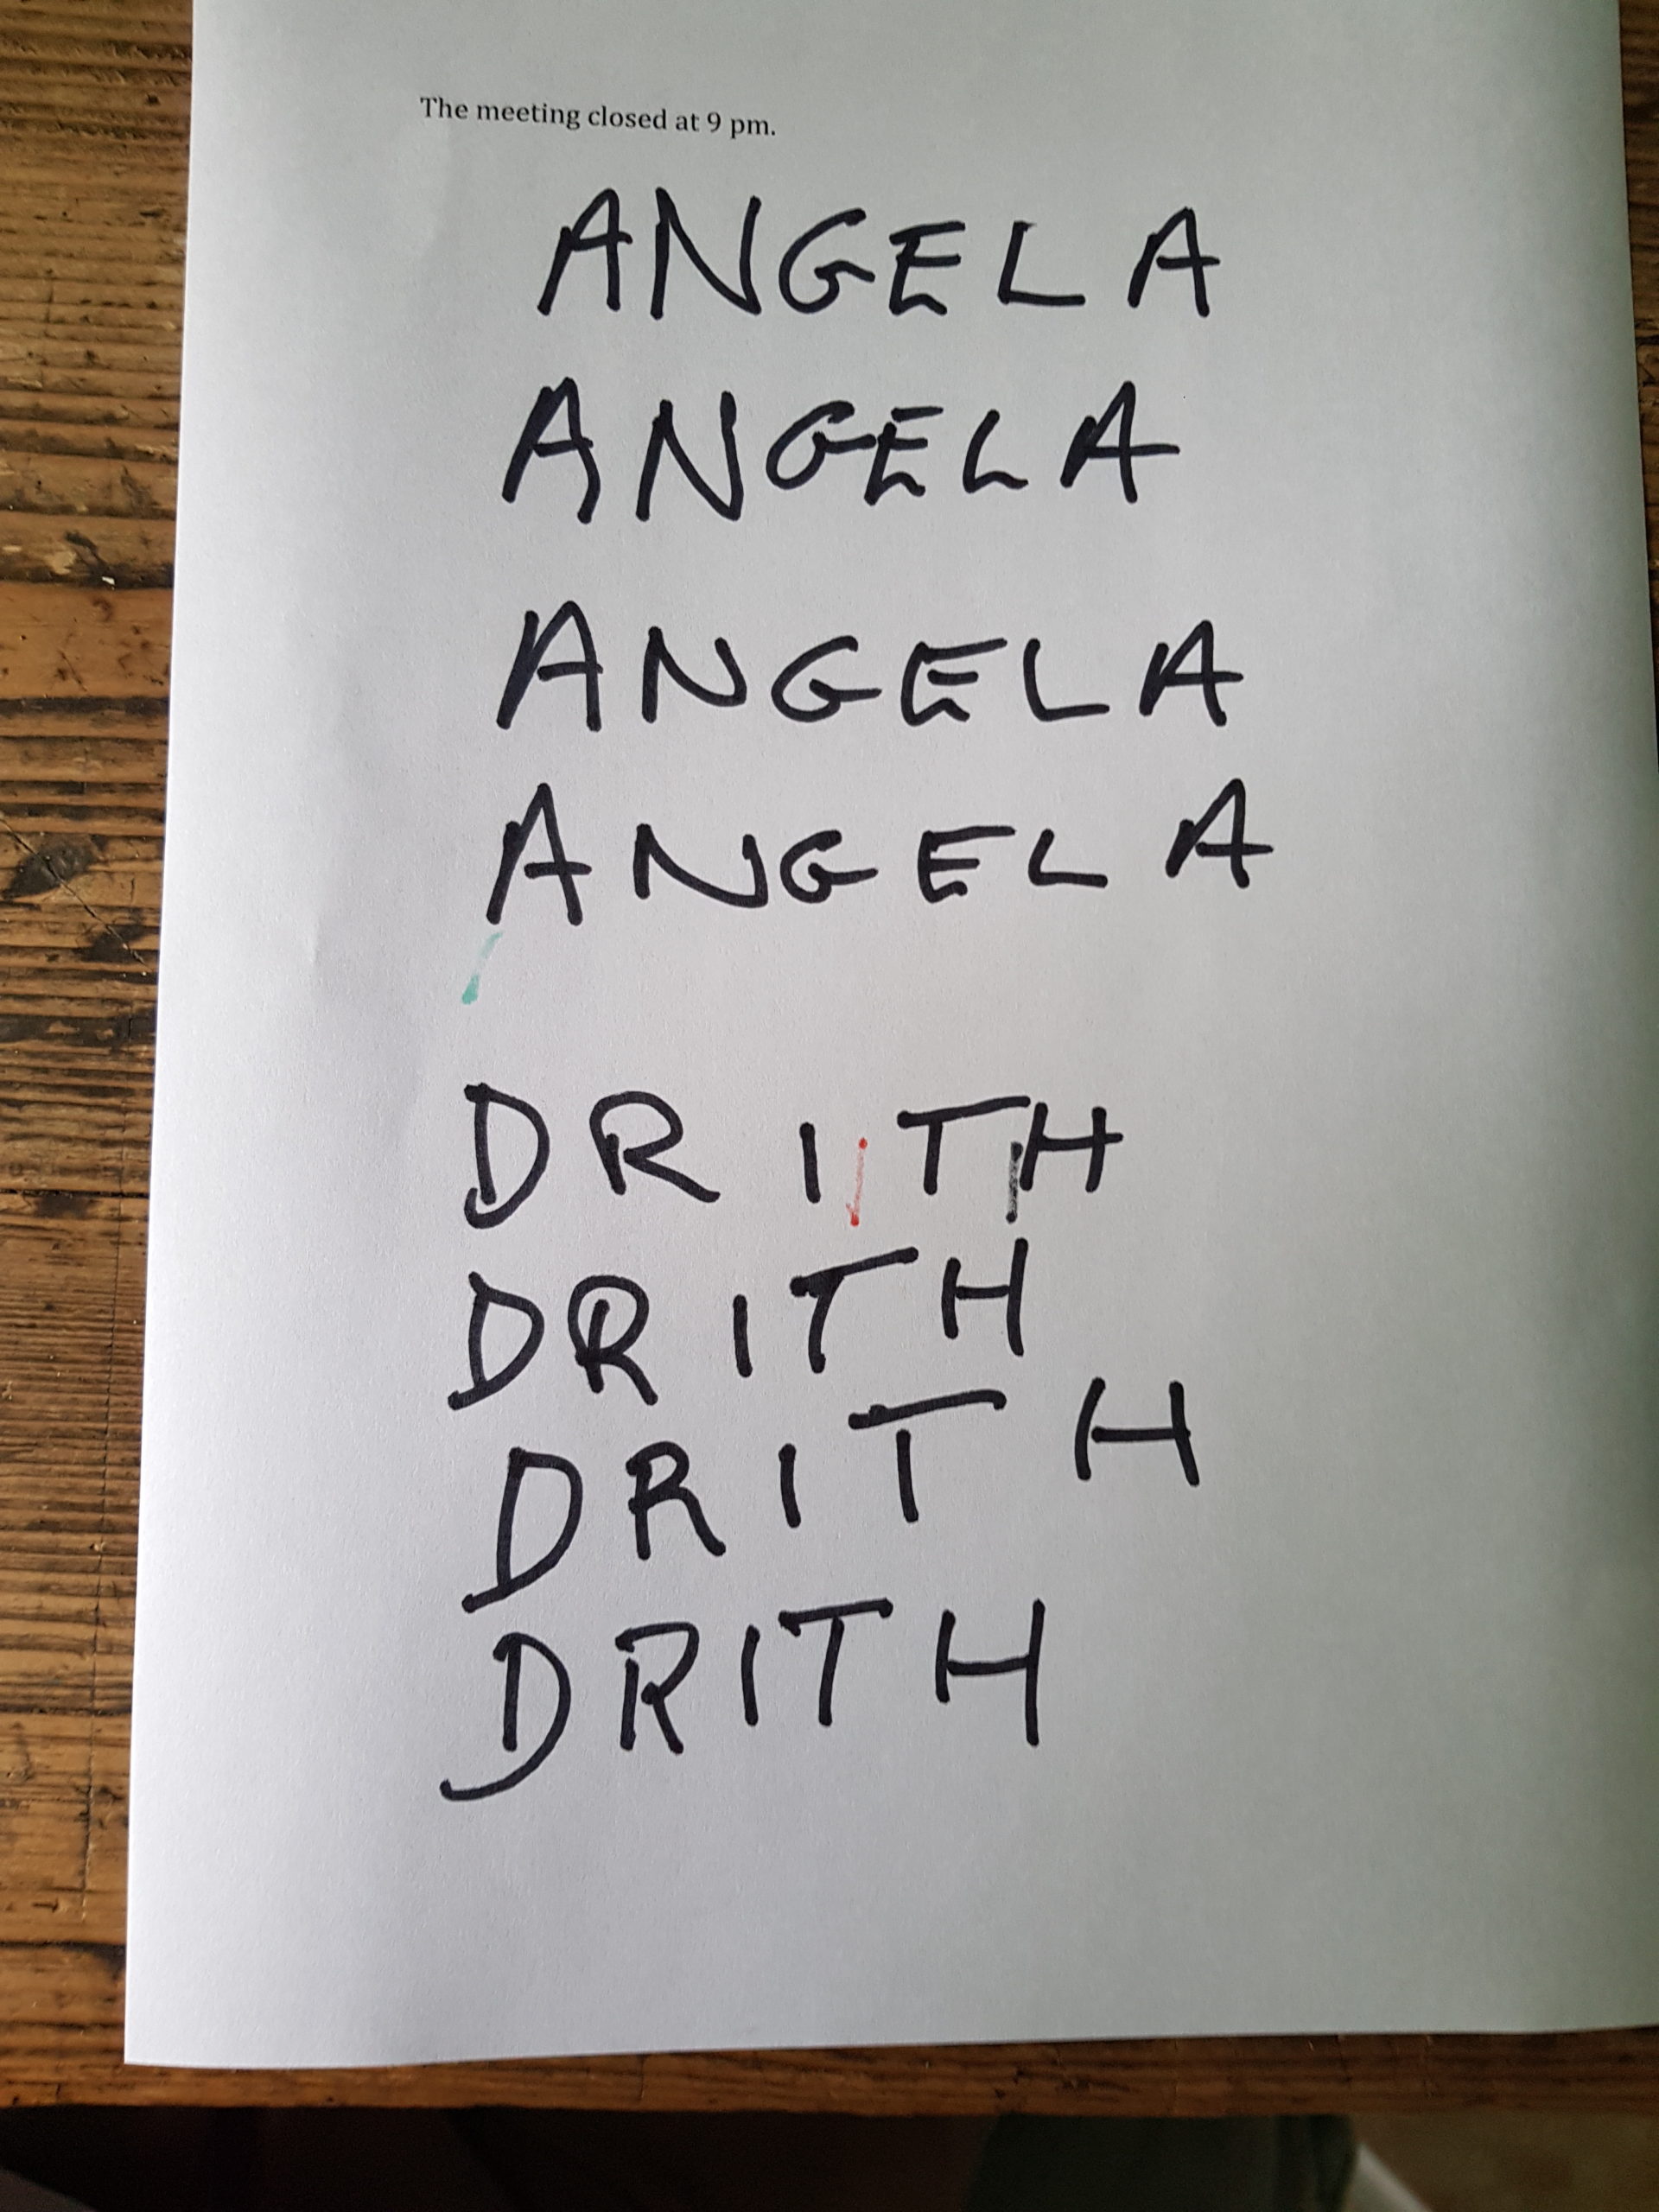 The meeting closed at 9 pm.
ANGELA
ANGELA
ANGELA
ANGELA
DRITH
DRITH
DRITH
DRITH